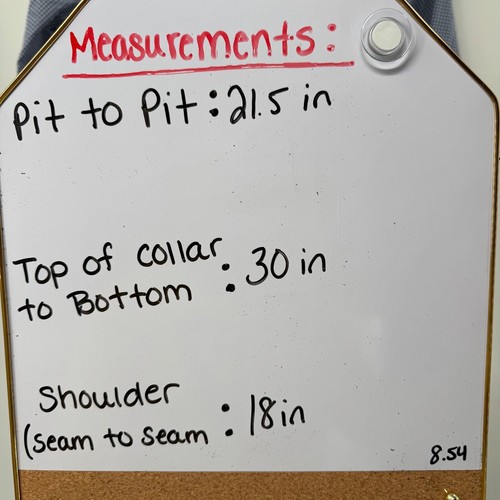 Measurements:
Pit to Pit: 21.5 in
Top of collar
to Bottom : 30 in
Shoulder
(seam to seam : 18in
8.54